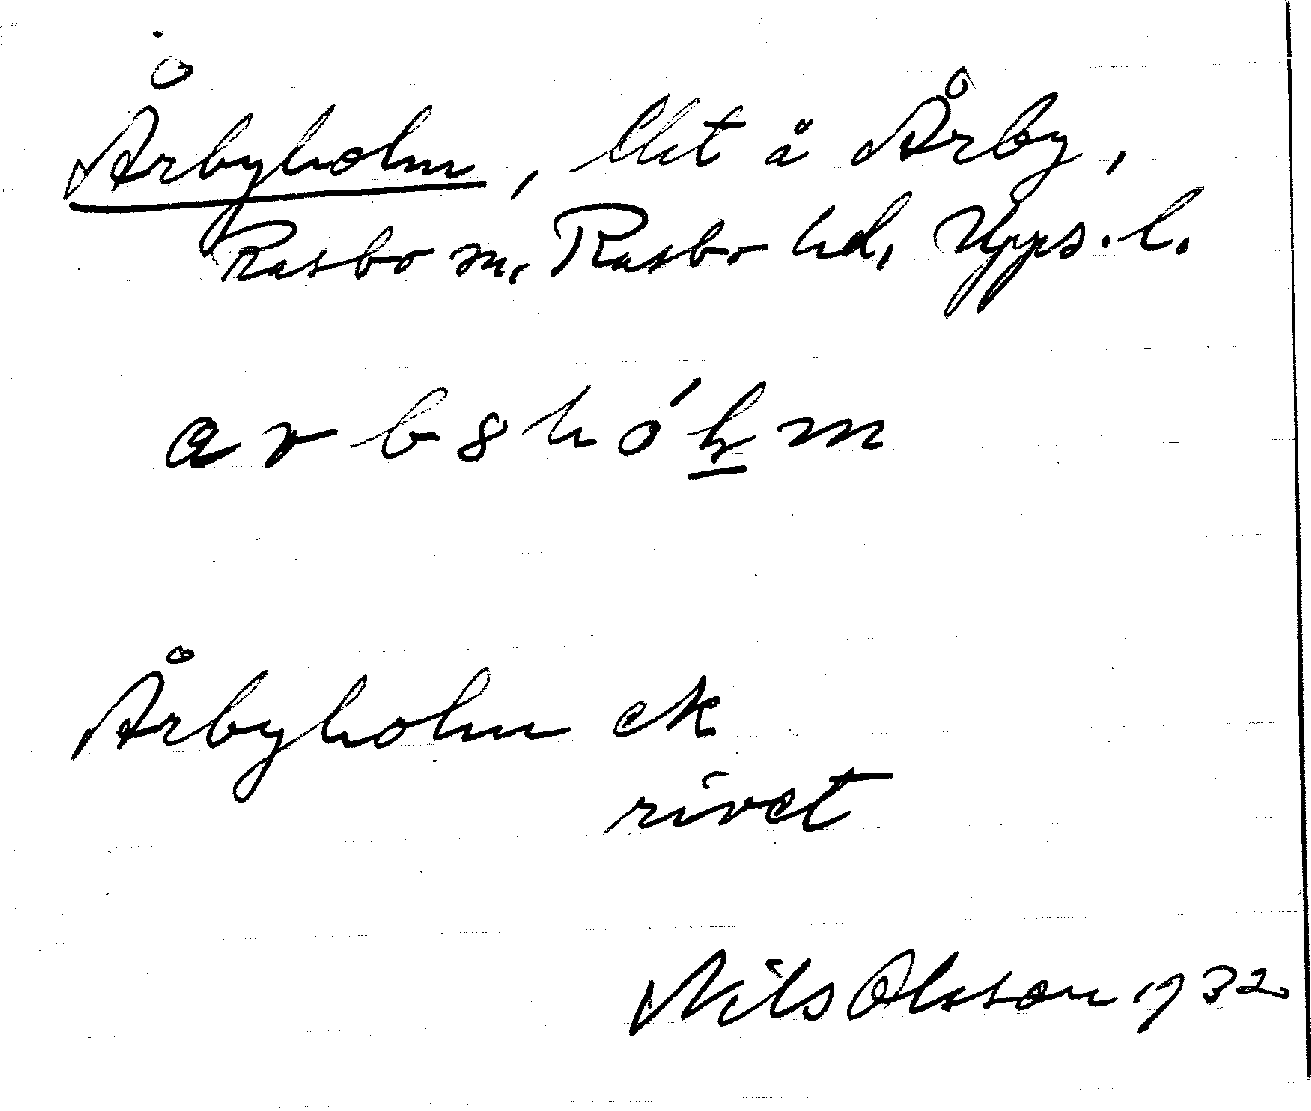 Årbyholm, lht å Årby,
Rasbo sn, Rasbo hd, Upps. l.
Årbyholm ek
rivet
Nils Olsson 1932